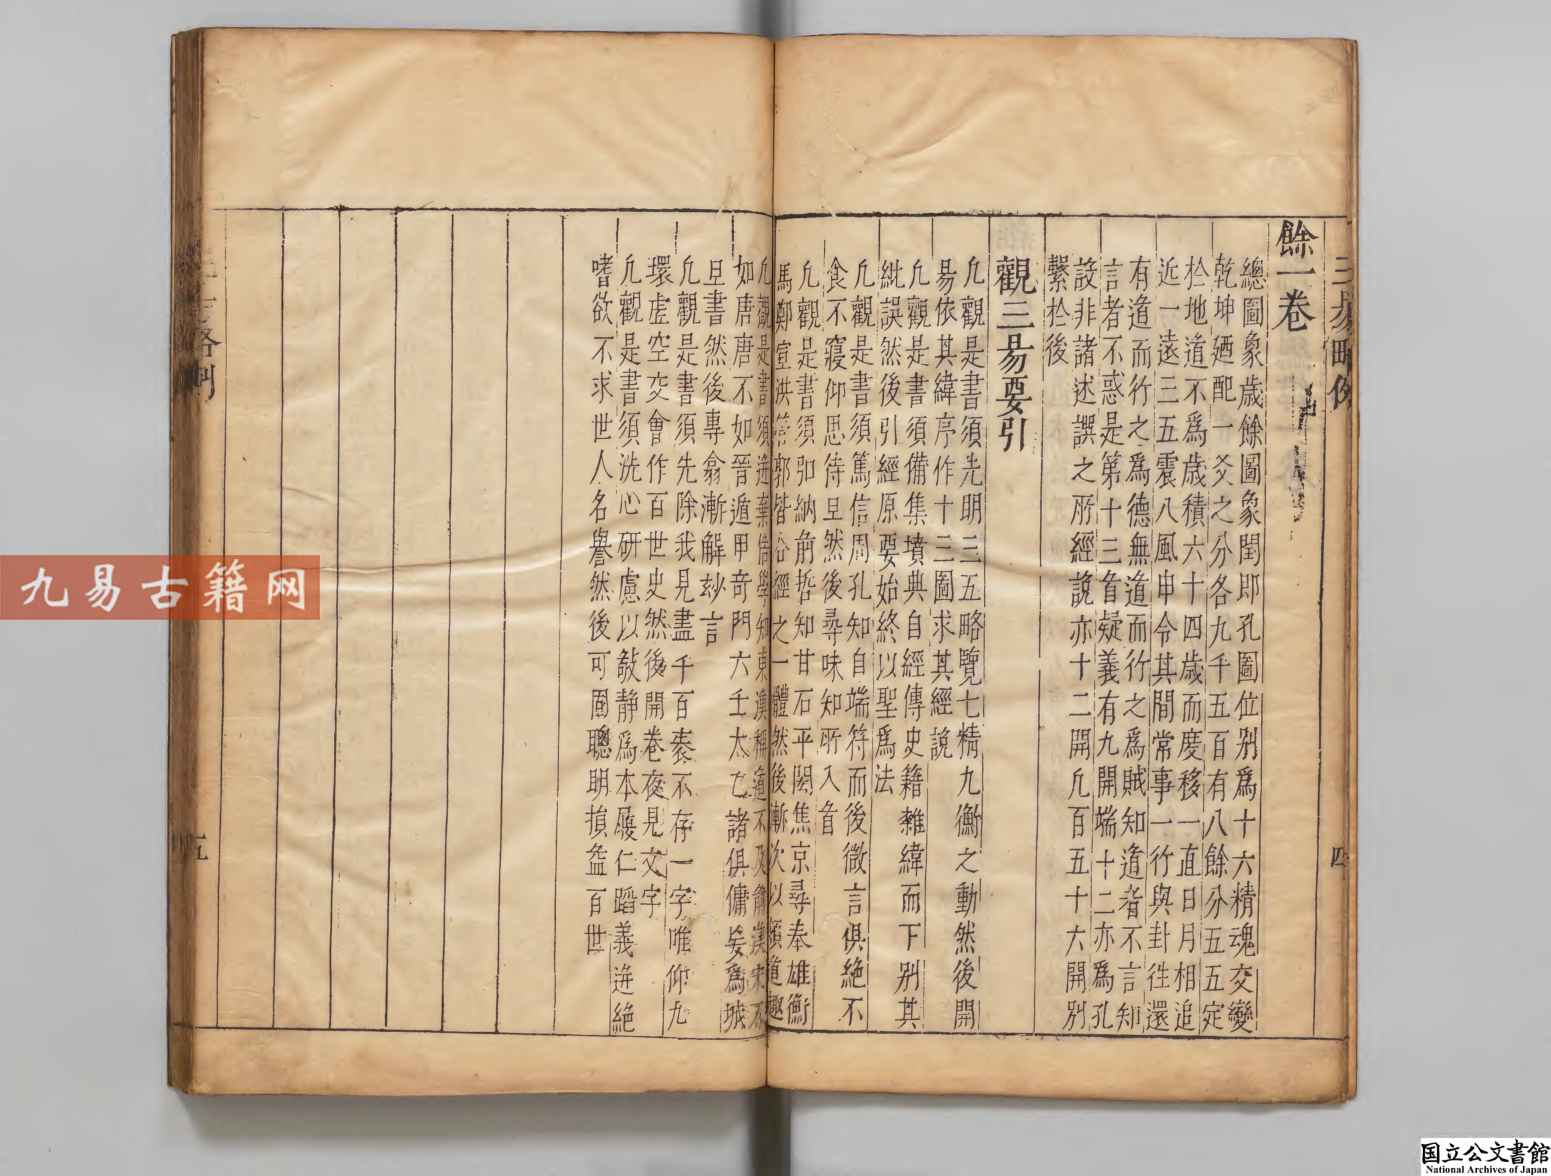 三易略例
四
餘一卷
總圖象歲餘圖象閏即孔圖位別爲十六精魂交變
乾坤廼配一爻之分各九千五百有八餘分五五定
於地道不爲歲積六十四歲而慶移一直日月相追
近一遠三五震八風申令其間常事一行與卦徃還
有道而行之爲德無道而行之爲賊知道者不言知
言者不惑是第十三首疑義有九開端十二亦爲孔
設非諸述譔之所經說亦十二開凢百五十六開別
繫於後
觀三易要引
凢觀是書須先明三五略覽七精九衡之動然後開
易依其緯序作十三圖求其經說
凢觀是書須備集墳典自經傳史籍雜緯而下別其
紕誤然後引經原要始終以聖爲法
凢觀是書須篤信周孔知自端符而後微言俱絶不
食不寢仰思待旦然後尋味知所入首
凢觀是書須弘納前哲知甘石平閎焦京尋奉雄衡
馬鄭宣洪管郭皆谷經之一體然後漸次以領道趣
凢觀是書須迸棄俗學知東漢稱道不及前漢宋不
如唐唐不如晉遁甲奇門六壬太乙諸俱傭妄爲城
旦書然後專翕漸解玅言
凢觀是書須先除我見盡千百袠不存一字唯仰九
環虛空交會作百世史然後開卷夜見文字
凢觀是書須洗心研慮以敽靜爲本履仁蹈義迸絶
嗜欲不求世人名譽然後可圖聰明損益百世
三易略例
五
九易古籍网
国立公文書館
National Archives of Japan